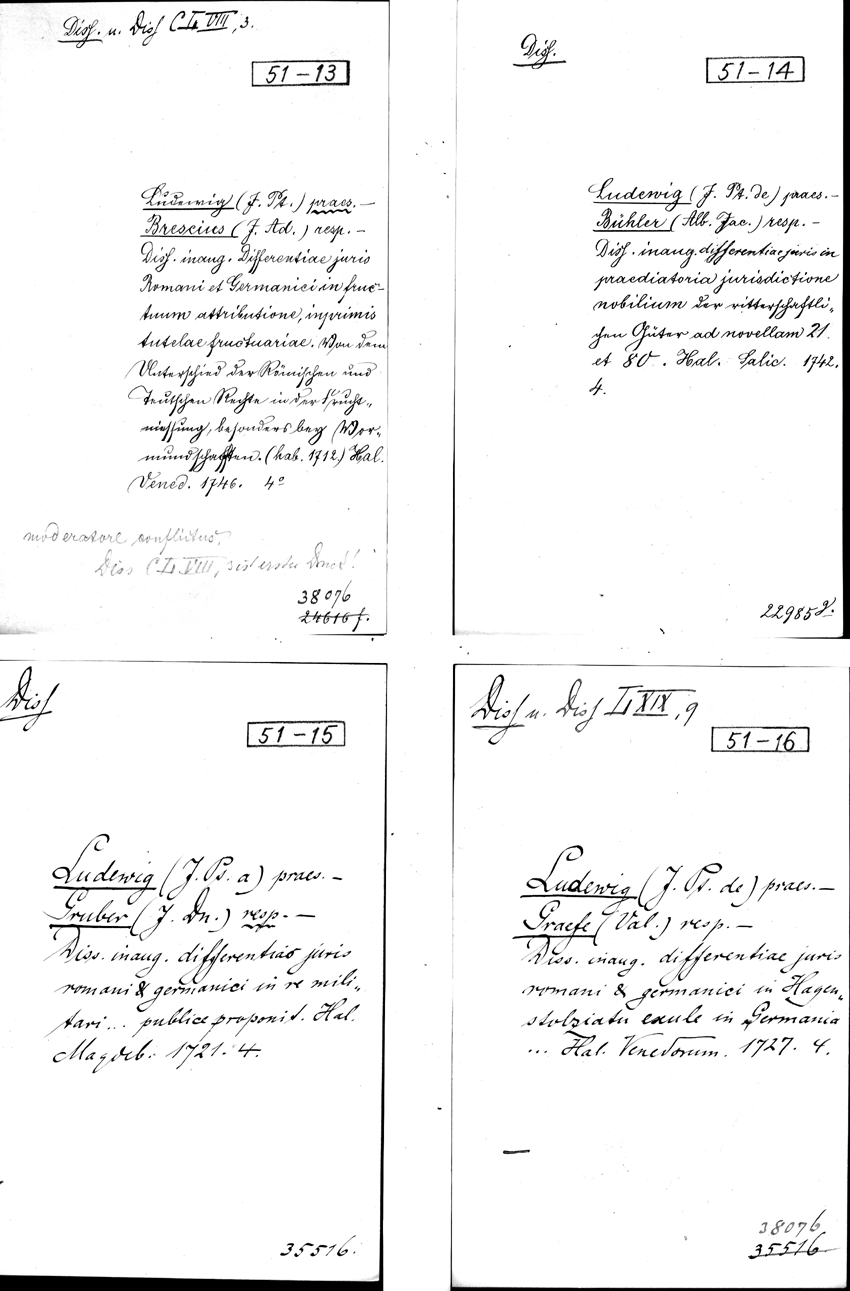 Diss. u. Diss C L VIII, 3.
51-13
Ludewig (J. Pt.) praes. —
Brescius (J. Ad.) resp. —
Diss. inaug. Differentiae juris
Romani et Germanici in fruc-
tuum attributione, inprimis
tutelae fructuariae. Von dem
Unterschied der Römischen und
Teutschen Rechte in der Frucht-
niessung, besonders bey Vor-
mundschafften. (hab. 1712.) Hal.
Vened. 1746. 4°
moderatore conflictus.
Diss C L VIII,
38076
24616 f.
Diss.
51-14
Ludewig (J. Pt. de) praes. —
Bühler (Alb. Jac.) resp. —
Diss. inaug. differentiae juris in
praediatoria jurisdictione
nobilium der ritterschaftli-
chen Güter ad novellam 21.
et 80. Hal. Salic. 1742.
4.
22985 d.
Diss
51-15
Ludewig (J. Pt. a) praes. —
Gruber (J. Dn.) resp. —
Diss. inaug. differentias juris
romani & germanici in re mili-
tari... publice proponit. Hal.
Magdeb. 1721. 4.
35516.
Diss u. Diss L XIX, 9
51-16
Ludewig (J. Pt. de) praes. —
Graefe (Val.) resp. —
Diss. inaug. differentiae juris
romani & germanici in Hagen-
stolziatu exule in Germania
... Hal. Venedorum. 1727. 4.
38076
35516